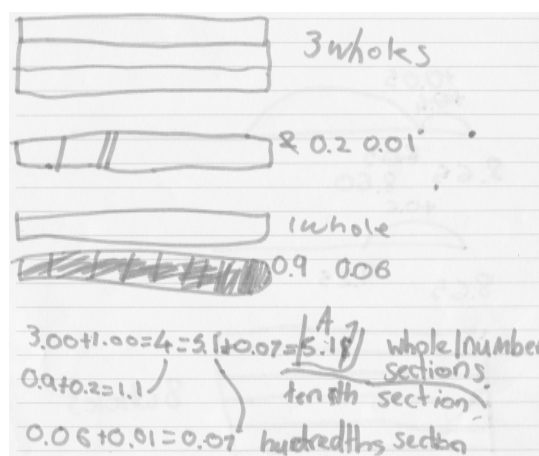 3 wholes
& 0.2 0.01
1 whole
0.9 0.06
3.00+1.00=4=5.1+0.07=5.18 whole/number
sections
0.9+0.2=1.1 tenth section
0.06+0.01=0.07 hundredths section